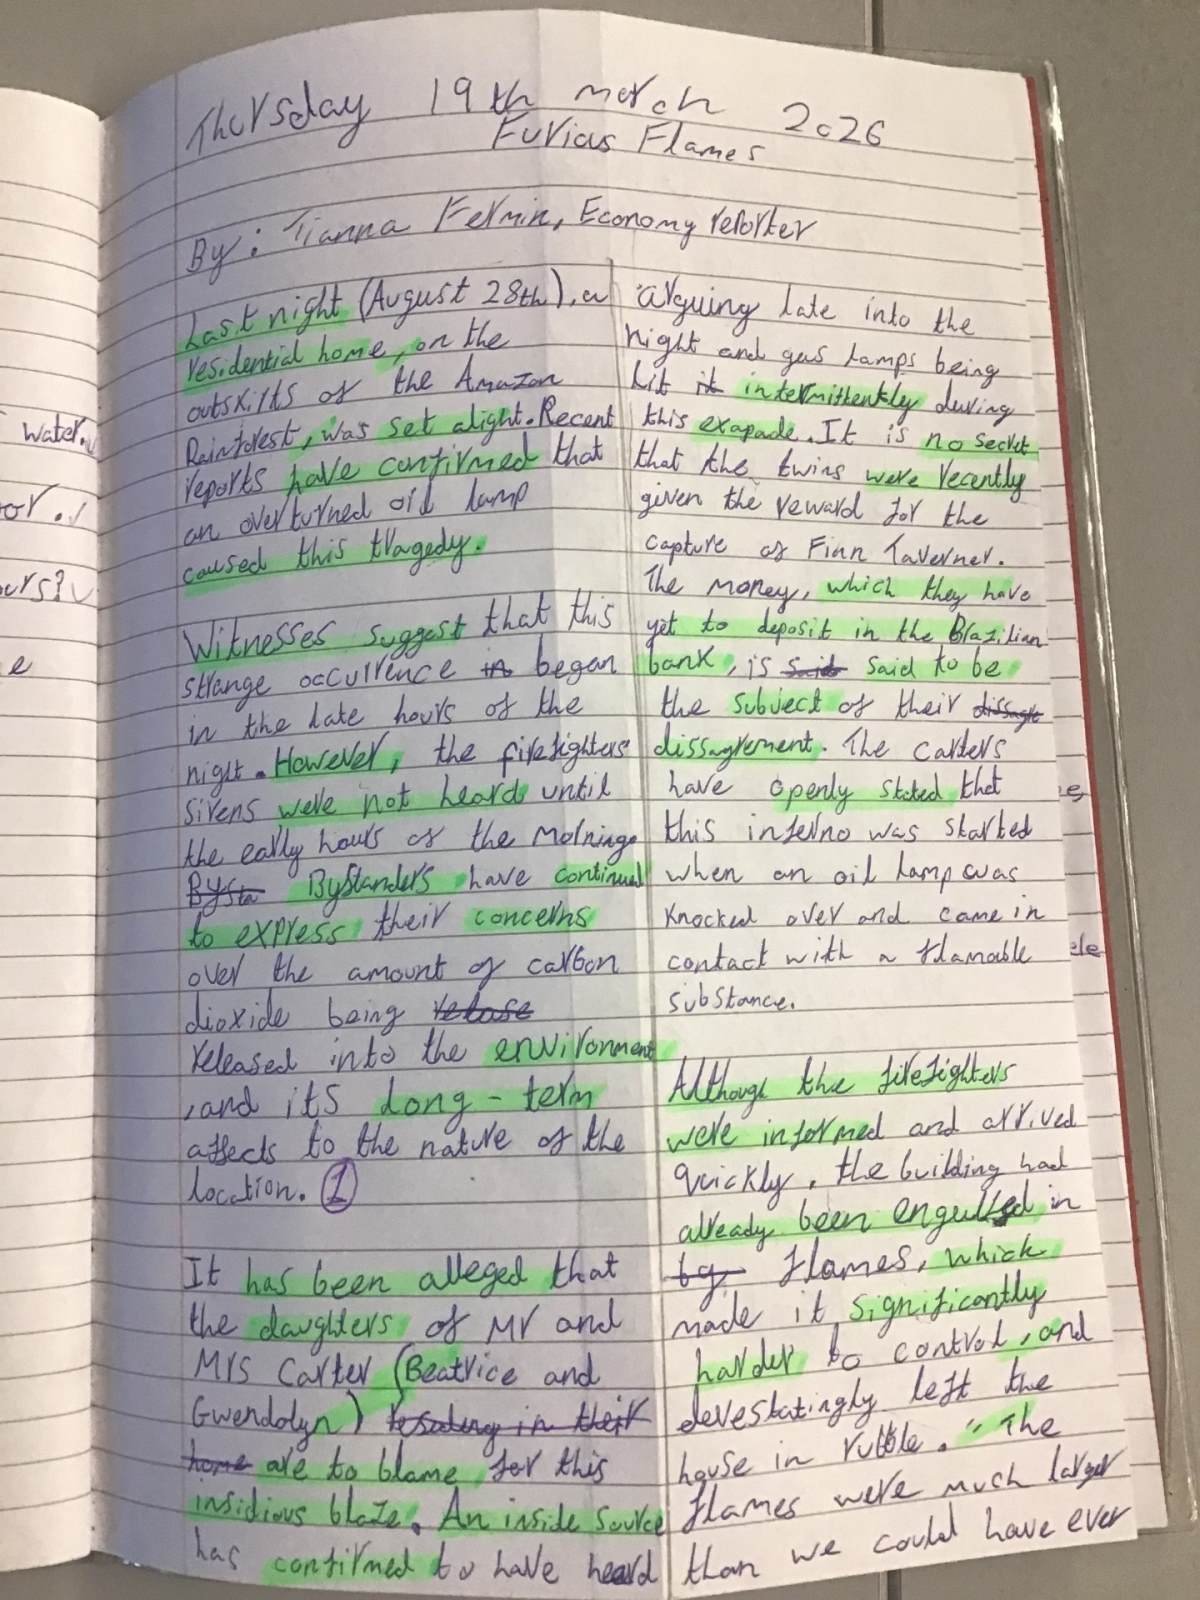 Thursday 19th march 2026
Furious Flames
By: Tianna Fermin, Economy reporter
Last night (August 28th), a
residential home, on the
outskirts of the Amazon
Rainforest, was set alight. Recent
reports have confirmed that
an overturned oil lamp
caused this tragedy.
Witnesses suggest that this
strange occurrence in began
in the late hours of the
night. However, the firefighters'
sirens were not heard until
the early hours of the morning.
Bysta Bystanders have continued
to express their concerns
over the amount of carbon
dioxide being relase
released into the environment
, and its long-term
affects to the nature of the
location. 1
It has been alleged that
the daughters of Mr and
Mrs Carter (Beatrice and
Gwendolyn) residing in their
home are to blame for this
insidious blaze. An inside source
has confirmed to have heard
arguing late into the
night and gas lamps being
lit it intermittently during
this exapade. It is no secret
that the twins were recently
given the reward for the
capture of Finn Taverner.
The money, which they have
yet to deposit in the Brazilian
bank, is said said to be
the subject of their dissagre
dissagrement. The carters
have openly stated that
this inferno was started
when an oil lamp was
knocked over and came in
contact with a flamable
substance.
Although the firefighters
were informed and arrived
quickly, the building had
already been engulfed in
by flames, which
made it significantly
harder to control, and
devestatingly left the
house in rubble. "The
flames were much larger
than we could have ever
water.
or.
ours?
e
e,
ele